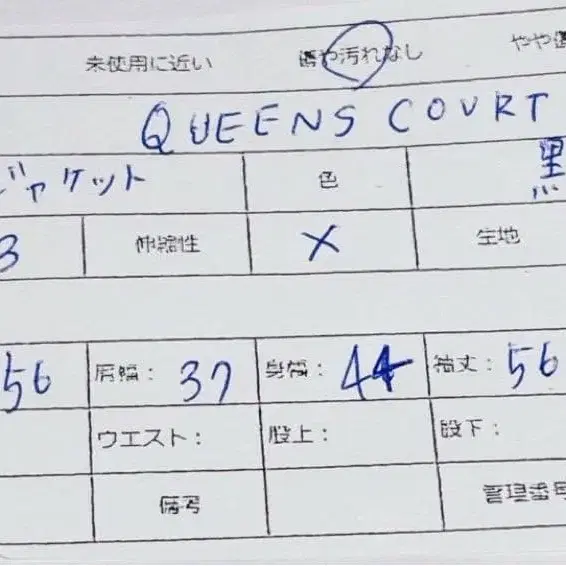 未使用に近い 傷や汚れなし やや傷
QUEENS COURT
ジャケット 色 黒
3 伸縮性 × 生地
56 肩幅: 37 身幅: 44 袖丈: 56
ウエスト: 股上: 股下:
備考 管理番号